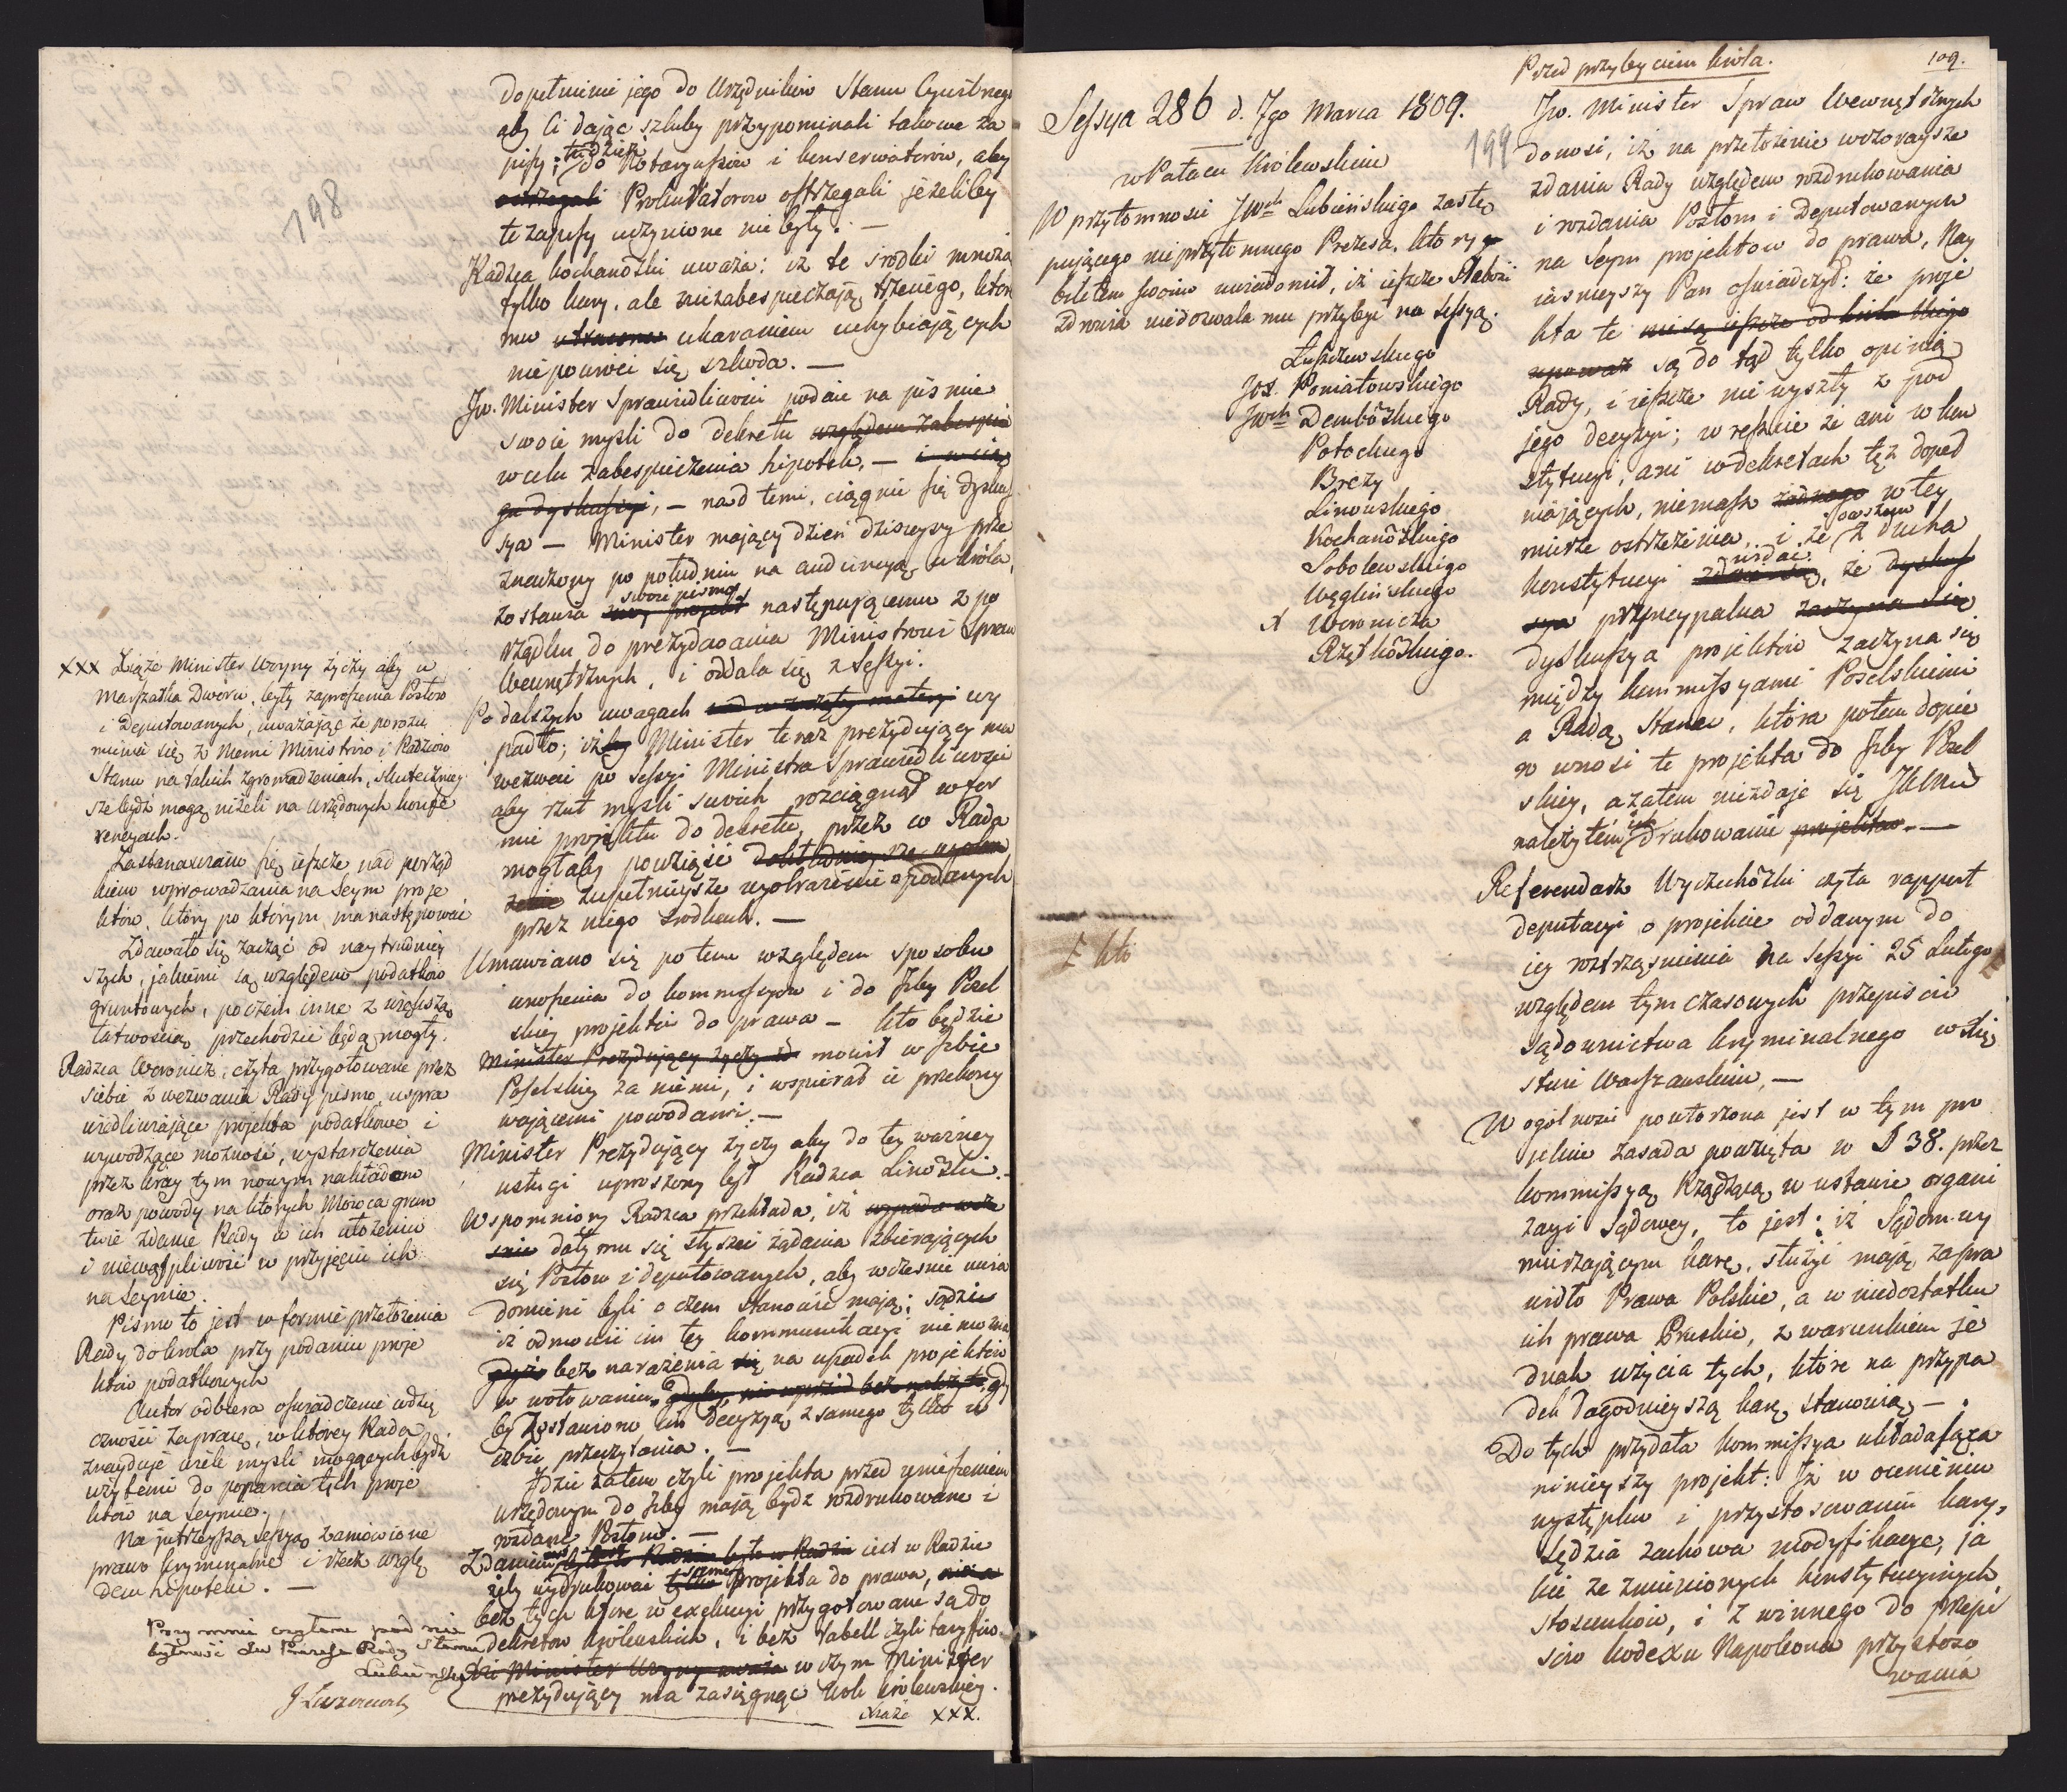 198
dopełnienie jego do Urzędników Stanu Cywilnego
aby Ci dając szluby przypominali takowe za
pisy; tudzież do Notaryuszów i konserwatorów, aby
ostrzegali Prokuratorow ostrzegali jeżeliby
te zapisy uczynione nie były. —
Radzca Kochanowski uważa: iż te srodki mnożą
tylko kary, ale niezabespieczają trzeciego, któr
mu ukaraniem uchybiających
niepowróci się szkoda. —
Jw. Minister Sprawiedliwości podaie na piśmie
swoie mysli do dekretu względem zabespie
w celu zabespieczenia hipotek, — i w cią
gu dyskussyi, — nad temi, ciągnie się dysku
sya — Minister mający dzień dzisieyszy prze
znaczony po południu na audiencyą u króla,
zostawia swoie pismo następującemu z po
rządku do prezydowania Ministrowi Spraw
Wewnętrznych, i oddala się z Sessyi.
Po dalszych uwagach nad w wziętey materyi wy
padło; iżby Minister teraz prezydujący ma
wezwać po Sessyi Ministra Sprawiedliwości
aby rzut mysli swoich rozciągnął w for
mie projektu do dekretu, przez co Rada
mogłaby powziąść dokładnieysze wyobra
żenie zupełnieysze wyobrażenie o podanych
przez niego srodkach. —
Umawiano się potem względem sposobu
wnoszenia do kommissyow i do Izby Posel
skiey projektów do prawa — kto będzie
Minister Prezydujący życzy mówił w Izbie
Poselskiey za niemi, i wspierał ie przekony
wającemi powodami. —
Minister Prezydujący życzy aby do tey ważney
usługi uproszony był Radzca Linowski. —
Wspomniony Radzca przekłada, iż
dały mu się słyszeć żądania zbierających
się Posłow i deputowanych, aby wcześnie uwia
domieni byli o czem stanowić mają; sądzi
iż odmówić im tey kommunikacyi nie można
gdyż bez narażenia się na upadek projektów
w wotowaniu, gdy
by zostawiono im decyzyą z samego tylko w
izbie przeczytania. —
Idzie zatem czyli projekta przed wniesieniem
urzędowym do Izby mają bydź rozdrukowane i
rozdane Posłom. —
Zdaniem było w Radzie iest w Radzie
żeby wydrukować tylko same projekta do prawa,
bez tych które w exekucyi przygotowane są do
dekretow królewskich, i bez Tabell czyli taryffów
Minister Woyny uważa w czym Minister
prezydujący ma zasięgnąć woli królewskiey.
Xiąże XXX.
XXX Xiąże Minister Woyny życzy aby u
Marszałka Dworu, były zaproszenia Posłow
i Deputowanych, uważając że porozu
mienie się z Niemi Ministrów i Radzców
Stanu na takich zgromadzeniach, skuteczniey
sze bydź mogą niżeli na urzędowych konfe
rencyach.
Zastanawiano się ieszcze nad porząd
kiem wprowadzania na Seym proje
któw, który po którym ma następować
Zdawało się zacząć od naytrudniey
szych, jakiemi są względem podatków
gruntowych, poczem inne z większą
łatwością przechodzić będą mogły.
Radzca Woronicz, czyta przygotowane przez
siebie z wezwania Rady pismo, uspra
wiedliwiające projekta podatkowe i
wywodzące możność, wystarczenia
przez kray tym nowym nakładom
oraz powody na których Mówca grun
tuie zdanie Rady w ich ułożeniu
i niewątpliwość w przyjęciu ich
na Seymie.
Pismo to jest w formie przełożenia
Rady do króla przy podaniu proje
któw podatkowych
Autor odbiera oświadczenie wdzię
czności za pracę, w którey Rada
znayduje wiele mysli mogących bydź
użytemi do poparcia tych proje
któw na Seymie.
Na jutrzeyszą sessyą zamówione
prawo kryminalne i rzecz wzglę
dem hipoteki. —
Przy mnie czytane pod nie
bytność Jw Prezesa Rady Stanu
Lubieński
J Łuszczewski
109.
199
Sessya 286 d. 7go Marca 1809.
w Pałacu Królewskim
W przytomności JWch Lubieńskiego zastę
pującego nieprzytomnego Prezesa, który
biletem swoim uwiadomił, iż ieszcze słabość
zdrowia niedozwala mu przybyć na sessyą.
Łuszczewskiego
Jos. Poniatowskiego
JWch Dembowskiego
Potockiego
Brezy
Linowskiego
Kochanowskiego
Sobolewskiego
Węglińskiego
x Woronicza
Rzętkowskiego.
Przed przybyciem króla.
Jw. Minister Spraw Wewnętrznych
donosi, iż na przełożenie wczoraysze
zdania Rady względem rozdrukowania
i rozdania Posłom i Deputowanym
na Seym projektow do prawa, Nay
iaśnieyszy Pan oświadczył: że proje
kta te nie są ieszcze od
są do tąd tylko opinią
Rady, i ieszcze nie wyszły z pod
jego decyzyi; w reszcie że ani w kon
stytucyi, ani w dekretach też dopeł
niających, niemasz żadnego w tey
mierze ostrzeżenia, i że owszem z ducha
konstytucyi widać, że dyskus
sya pryncypalna zaczyna się
dyskussya projektów zaczyna się
między kommissyami Poselskiemi
a Radą Stanu, która potem dopie
ro wnosi te projekta do Izby Posel
skiey, a zatem niezdaje się JKMci
należytém ich drukowanie projektow. —
Referendarz Wyczechowski czyta rapport
deputacyi o projekcie oddanym do
iey roztrząśnienia na sessyi 25 Lutego
względem tymczasowych przepisów
sądownictwa kryminalnego w Xię
stwie Warszawskim, —
W ogólności powtorzona jest w tym pro
jekcie zasada powzięta w § 38. przez
kommissyą Rządzącą w ustawie organi
zacyi sądowey, to jest: iż Sądom wy
mierzającym karę, służyć mają za pra
widło Prawa Polskie, a w niedostatku
ich prawa Pruskie, z warunkiem je
dnak użycia tych, które na przypa
dek łagodnieyszą karę stanowią —.
Do tych przydała kommissya układająca
ninieyszy projekt: Iż w ocenieniu
występku i przystosowaniu kary,
sędzia zachowa modyfikacye, ja
kie ze zmienionych konstytucyinych
stosunków, i z winnego do przepi
sów kodexu Napoleona przystoso
wania